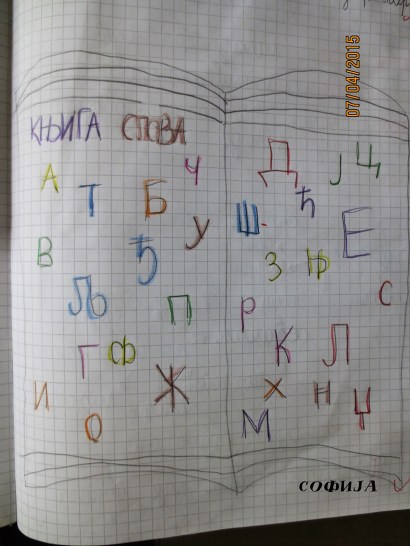 07/04/2015
КЊИГА СЛОВА
А Т Б Ч
В Ђ У
Љ П
Г Ф Ж
И О
Д Ј Ц
Ш Ћ Е
З Њ
Р С
К Л
Х Н Џ
М
СОФИЈА